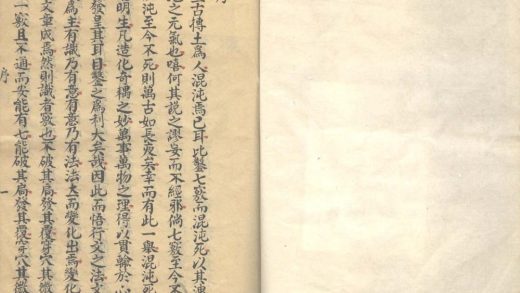 序
上古傳土爲人混沌焉已耳比鑿七竅而混沌死以其洩
之元氣也嘻何其說之謬妄而不經邪倘七竅至今不
沌至今不死則萬古如長夜矣幸而有此一舉混沌死
明生凡造化奇耦之妙萬事萬物之理得以貫輸於心
發皇其耳目鑿之爲利大矣哉因此而悟行文之法文
爲主有識乃有意有意乃有法法立而變化出焉變化
文章成焉然則識者竅也不破其扃發其覆穿穴其微
一竅且不通而安能有七能破其扃發其覆穿穴其微
序
一